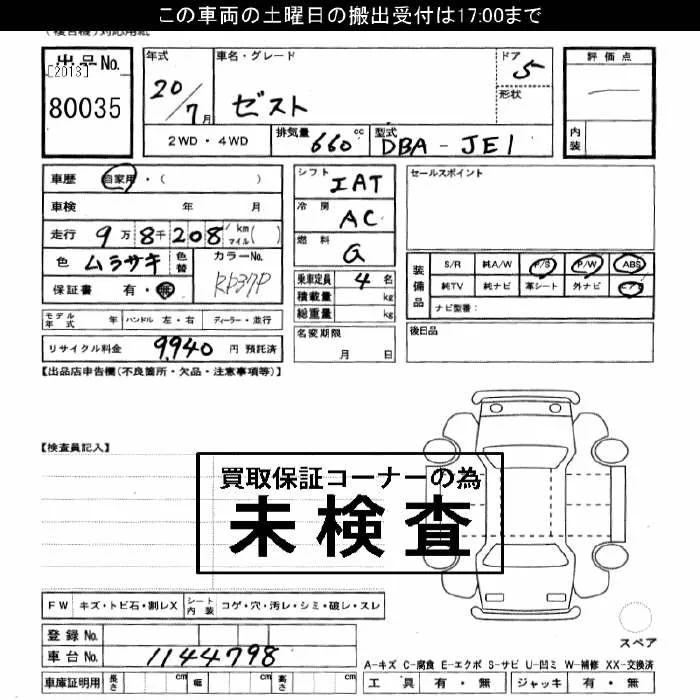 この車両の土曜日の搬出受付は17:00まで
(複合機)対応用紙
出品No.
[2013]
80035
年式
20/7月
車名・グレード
ゼスト
ドア
5
形状
評価点
内装
2WD・4WD
排気量 660 cc
型式 DBA-JE1
車歴 自家用・( )
車検 年 月
走行 9万8千208 km マイル ( )
色 ムラサキ 色替 カラーNo. RP37P
保証書 有・無
シフト IAT
冷房 AC
燃料 G
乗車定員 4 名
積載量 kg
総重量 kg
名変期限
月 日
セールスポイント
装備品
S/R 純A/W P/S P/W ABS
純TV 純ナビ 革シート 外ナビ エアB
ナビ型番:
後日品
モデル年式 年 ハンドル 左・右 ディーラー・並行
リサイクル料金 9,940 円 預託済
【出品店申告欄(不良箇所・欠品・注意事項等)】
【検査員記入】
買取保証コーナーの為
未検査
FW キズ・トビ石・割レX シート内装 コゲ・穴・汚レ・シミ・破レ・スレ
登録No.
車台No. 1144798
車庫証明用 長さ cm 幅 cm 高さ cm
スペア
A-キズ C-腐食 E-エクボ S-サビ U-凹ミ W-補修 XX-交換済
工具 有・無 ジャッキ 有・無